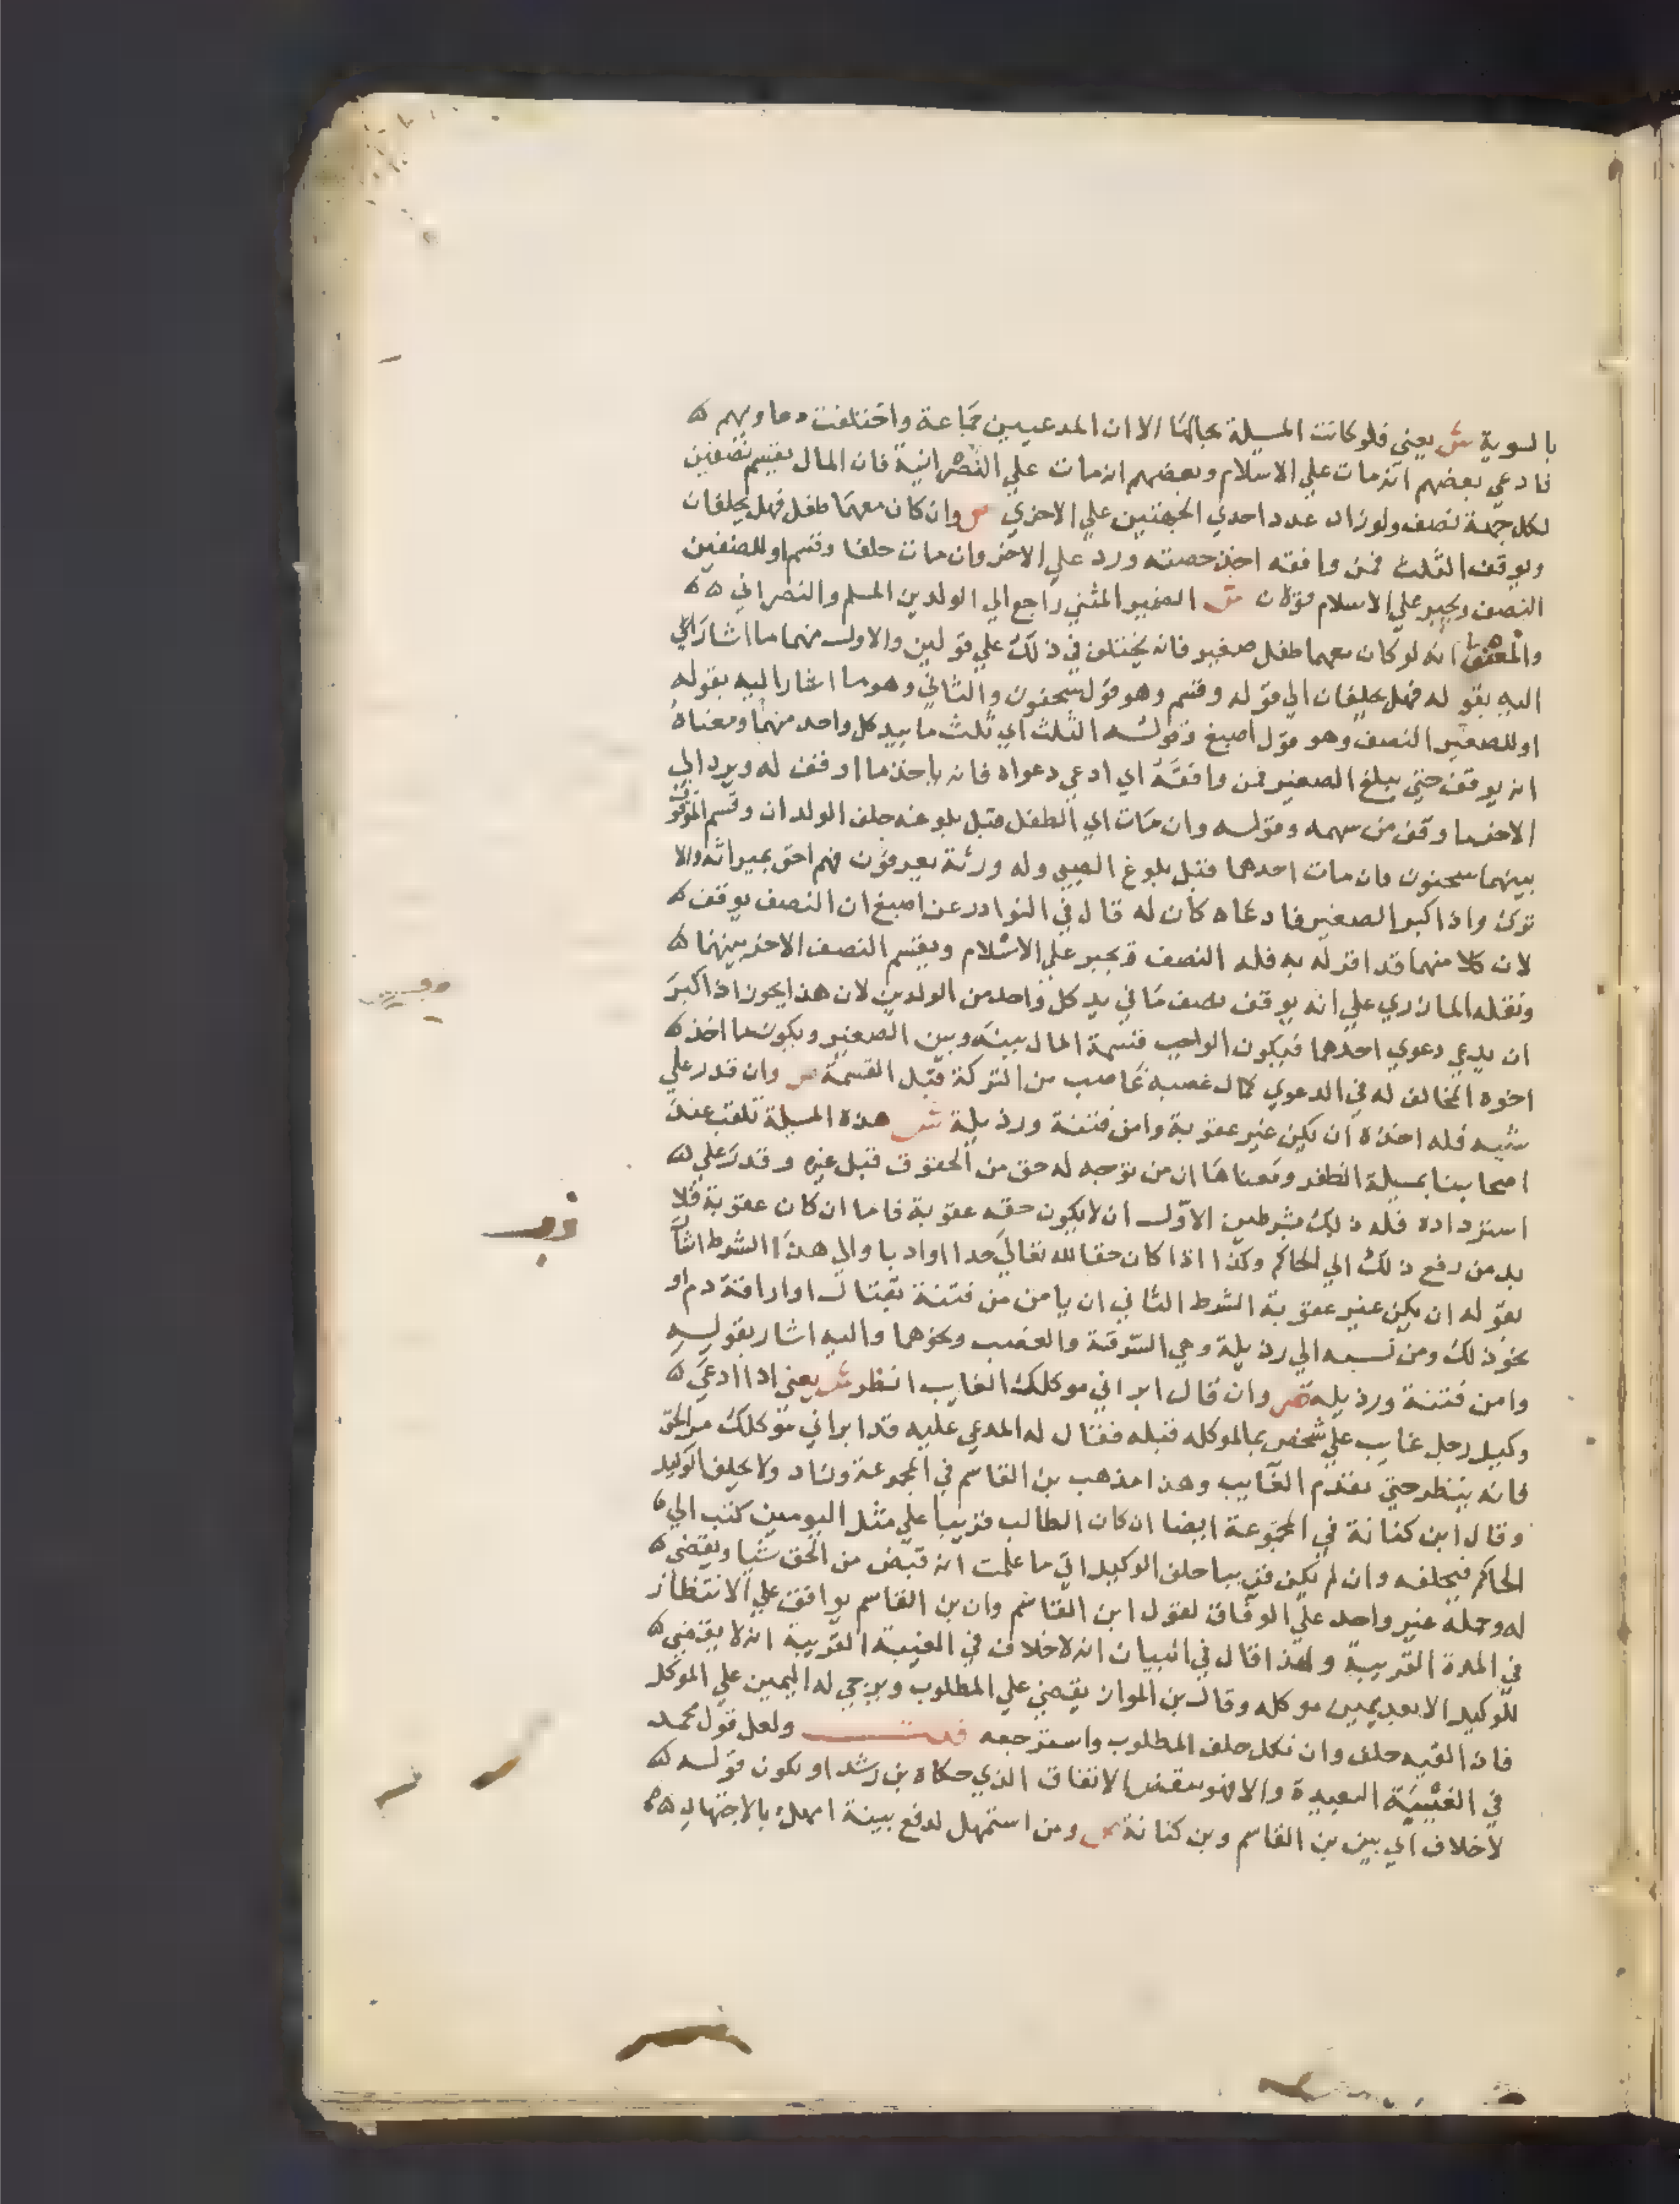 بالسوية ش يعني فلو كانت المسيلة بحالها الا ان المدعيين جماعة واختلفت دعاويهم ه
فادعي بعضهم انه مات علي الاسلام وبعضهم انه مات علي النصرانية فان المال يقسم نصفين
لكل جهة نصف ولو زاد عدد احدي الجهتين علي الاخري ص وان كان معهما طفل فهل يحلفان
ويوقف الثلث فمن وافقه اخذ حصته ورد علي الاخر وان مات حلفا وقسم او للصغير
النصف ويجبر علي الاسلام قولان ش الضمير المثني راجع الي الولدين المسلم والنصراني ه ه
والمعني انه لو كان معهما طفل صغير فانه يختلف في ذلك علي قولين والاول منهما ما اشار الي
اليه بقوله فهل يحلفان الي قوله وقسم وهو قول سحنون والثاني وهو ما اشار اليه بقوله
او للصغير النصف وهو قول اصبغ وقوله الثلث اي ثلث ما بيد كل واحد منهما ومعناه
انه يوقف حتي يبلغ الصغير فمن وافقه اي ادعي دعواه فانه ياخذ ما اوقف له ويرد الي
الاخر ما وقف من سهمه وقوله وان مات اي الطفل قبل بلوغه حلف الولدان وقسم الموقوف
بينهما سحنون فان مات احدهما قبل بلوغ الصبي وله ورثة يعرفون فهم احق بميراثه والا
ترك واذا كبر الصغير فادعاه كان له قال في النوادر عن اصبغ ان النصف يوقف ه
لان كلا منهما قد اقر له به فله النصف ويجبر علي الاسلام ويقسم النصف الاخر بينهما ه
ونقله المازري علي انه يوقف نصف ما في يد كل واحد من الولدين لان هذا يجوز اذا كبر
ان يدعي دعوي احدهما فيكون الواجب قسمة المال بينه وبين الصغير ويكون ما اخذ ه
اخوه المخالف له في الدعوي كمال غصبه غاصب من التركة قبل القسمة ص وان قدر علي
شيه فله اخذه ان يكن غير عقوبة وامن فتنة ورذيلة ش هذه المسيلة تلقب عند
اصحابنا بمسيلة الظفر ومعناها ان من توجه له حق من الحقوق قبل غيره وقدر علي ه
استرداده فله ذلك بشرطين الاول ان لا يكون حقه عقوبة فاما ان كان عقوبة فلا
بد من رفع ذلك الي الحاكم وكذا اذا كان حقا لله تعالي حدا او ادبا والي هذا الشرط اشار
بقوله ان يكن غير عقوبة الشرط الثاني ان يامن من فتنة بقتال او اراقة دم او
نحو ذلك ومن نسبه الي رذيلة وهي السرقة والغصب ونحوهما واليه اشار بقوله
وامن فتنة ورذيله ص وان قال ابراني موكلك الغايب انظر ش يعني اذا ادعي ه
وكيل رجل غايب علي شخص بما لموكله قبله فقال له المدعي عليه قد ابراني موكلك من الحق
فانه ينتظر حتي يقدم الغايب وهذا مذهب بن القاسم في المجموعة وزاد ولا يحلف الوكيل
وقال ابن كنانة في المجموعة ايضا ان كان الطالب قريبا علي مثل اليومين كتب الي ه
الحاكم فيحلفه وان لم يكن قريبا حلف الوكيل اني ما علمت انه قبض من الحق شيا ويقضي ه
له وحمله غير واحد علي الوفاق لقول ابن القاسم وان بن القاسم يوافق علي الانتظار
في المدة القريبة ولهذا قال في البيان انه لا خلاف في الغيبة القريبة انه لا يقضي ه
للوكيل الا بعد يمين موكله وقال بن المواز يقضي علي المطلوب ويرجي له اليمين علي الموكل
فان القيه حلف وان نكل حلف المطلوب واسترجعه قلت ولعل قول محمد
في الغيبة البعيدة والا فهو ينقض الاتفاق الذي حكاه بن رشد او يكون قوله ه
لا خلاف اي بين بن القاسم وبن كنانة ص ومن استمهل لدفع بينة امهل بالاجتهاد ه ه